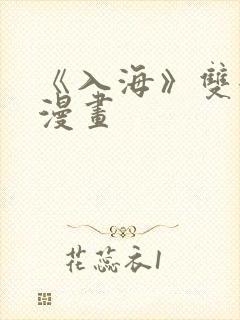 《入海》雙
漫畫
花蕊衣1